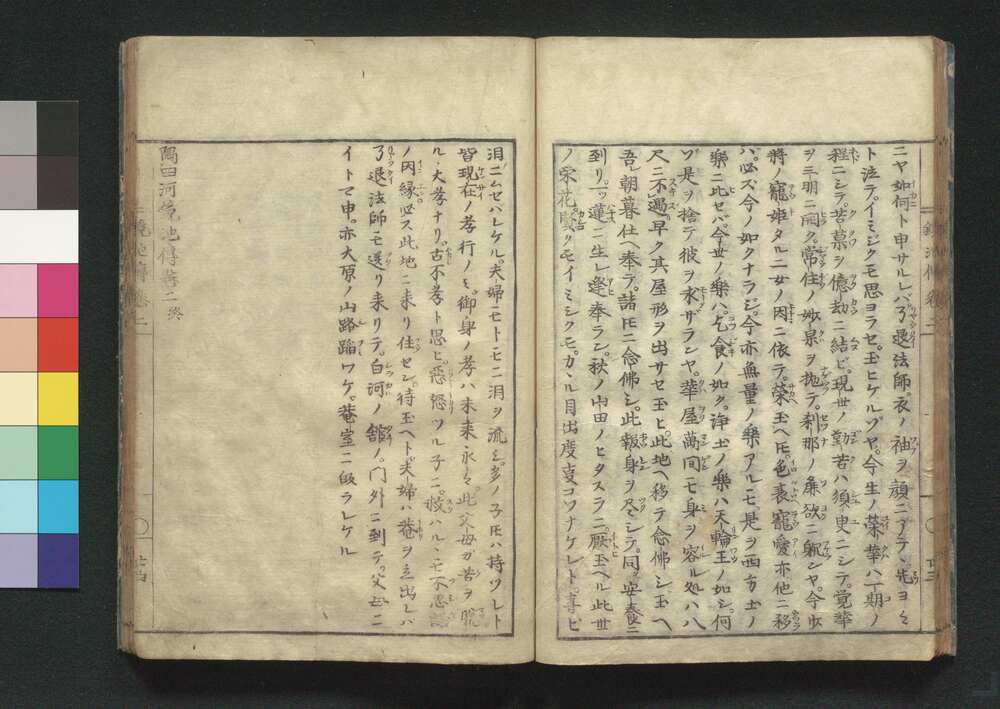 ニヤ如何ト申サルレバ了退法師衣ノ袖ヲ顔ニアテ先ヨミ
ト泣テイミジクモ思ヨラセ玉ヒケルゾヤ今生ノ榮華ハ一期ノ
程ニシテ苦菓ヲ億劫ニ結ビ現世ノ勤苦ハ須臾ニシテ覚華
ヲ三明ニ開ク常住ノ妙泉ヲ抛テ刹那ノ麁欲ニ躭ンヤ今少
將ノ寵姫タル二女ノ因ニ依テ榮玉ヘ𪜈色衰寵愛亦他ニ移
ハ必ズ今ノ如クナラジ今亦無量ノ樂アル𪜈是ヲ西方士ノ
樂ニ比セバ今世ノ樂ハ乞食ノ如ク浄土ノ樂ハ天輪王ノ如シ何
ゾ是ヲ捨テ彼ヲ求ザランヤ華屋萬間モ身ヲ容ル処ハ八
尺ニ不過早ク其屋形ヲ出サセ玉ヒ此地ヘ移テ念佛シ玉ヘ
吾レ朝暮仕ヘ奉テ諸𪜈ニ念佛シ此報身ヲ尽シテ同ク安養ニ
到リ一蓮ニ生レ逢奉ラン秋ノ山田ノヒタスラニ厭玉ヘル此世
ノ栄花賢クモイミシクモカヽル目出度叓コソナケレト喜ビ
泪ニムセバレケル夫婦モトモニ泪ヲ流シ多ノ子𪜈ハ持ツレト
皆現在ノ孝行ノミ御身ノ孝ハ未来永々此父母ガ苦ヲ脱
ル大孝ナリ古不孝ト思ヒ悪怒ツル子ニ
ノ因縁必ス此地ニ来リ住セン待玉ヘト夫婦ハ菴ヲ立出レハ
了退法師モ送リ来リテ白河ノ舘ノ門外ニ到テ父母ニ
イトマ申亦大原ノ山路蹈ワケ菴室ニ皈ラレケル
隅田河鏡池傳巻二終